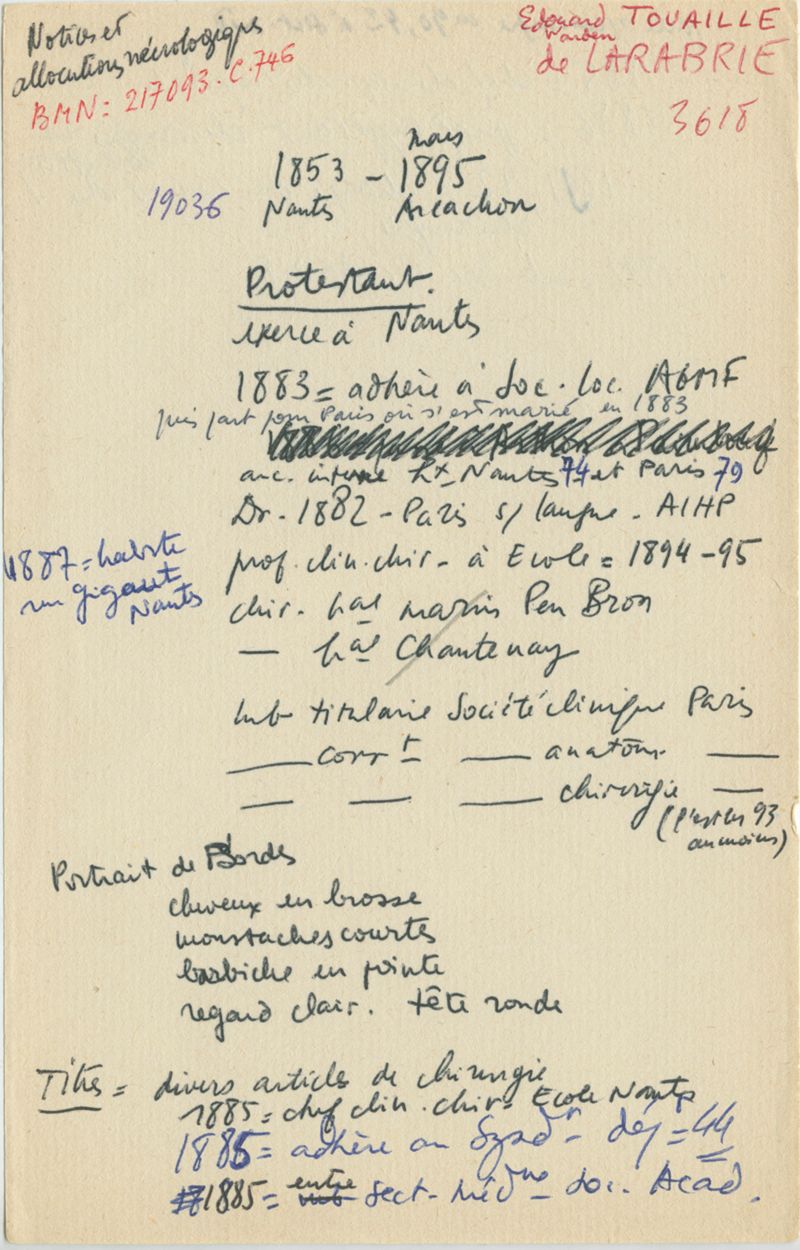 Notices et
allocutions nécrologiques
BMN = 217093. C. 746
Edouard TOUAILLE
de LARABRIE
3618
mars
1853 - 1895
19036 Nantes Arcachon
Protestant.
exerce à Nantes
1883 = adhère à Soc. loc. AGMF
puis part pour Paris où s'est marié en 1883
anc. interne hx Nantes 74 et Paris 79
Dr. 1882 - Paris s/ langue - AIHP
1887 = habite
rue Gigant
Nantes
prof. clin. chir. à Ecole = 1894-95
chir. hal marin Pen Bron
— hal Chantenay
mb titulaire Société clinique Paris
— corrt — anatom. —
— — — chirurgie —
(l'est en 93
au moins)
Portrait de Bordes
cheveux en brosse
moustaches courtes
barbiche en pointe
regard clair. tête ronde
Titres = divers articles de chirurgie
1885 = chef clin. chir. Ecole Nantes
1886 = adhère au Syndt - déj = 44
1885 = entre sect. médne Soc. Acad.